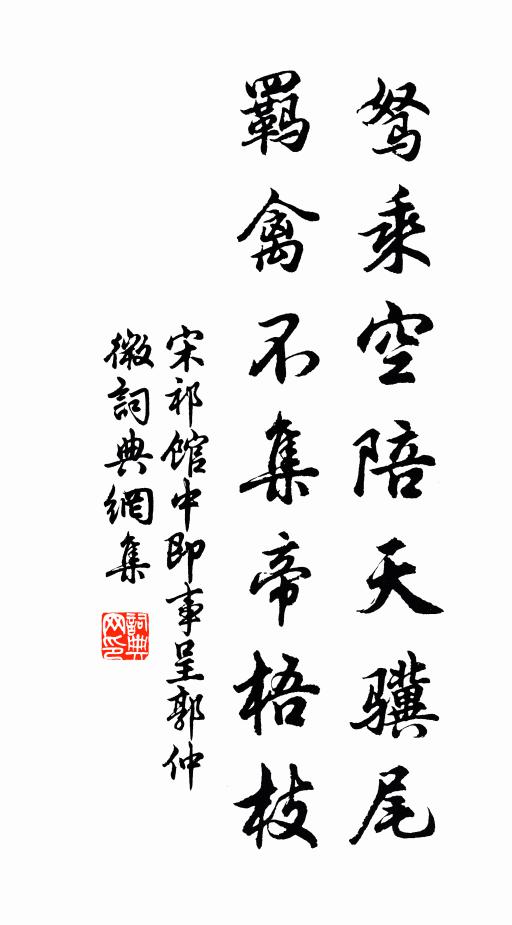 驽乘空陪天骥尾
羁禽不集帝梧枝
宋祁馆中即事呈郭仲
微詞典網集
詞典
网印